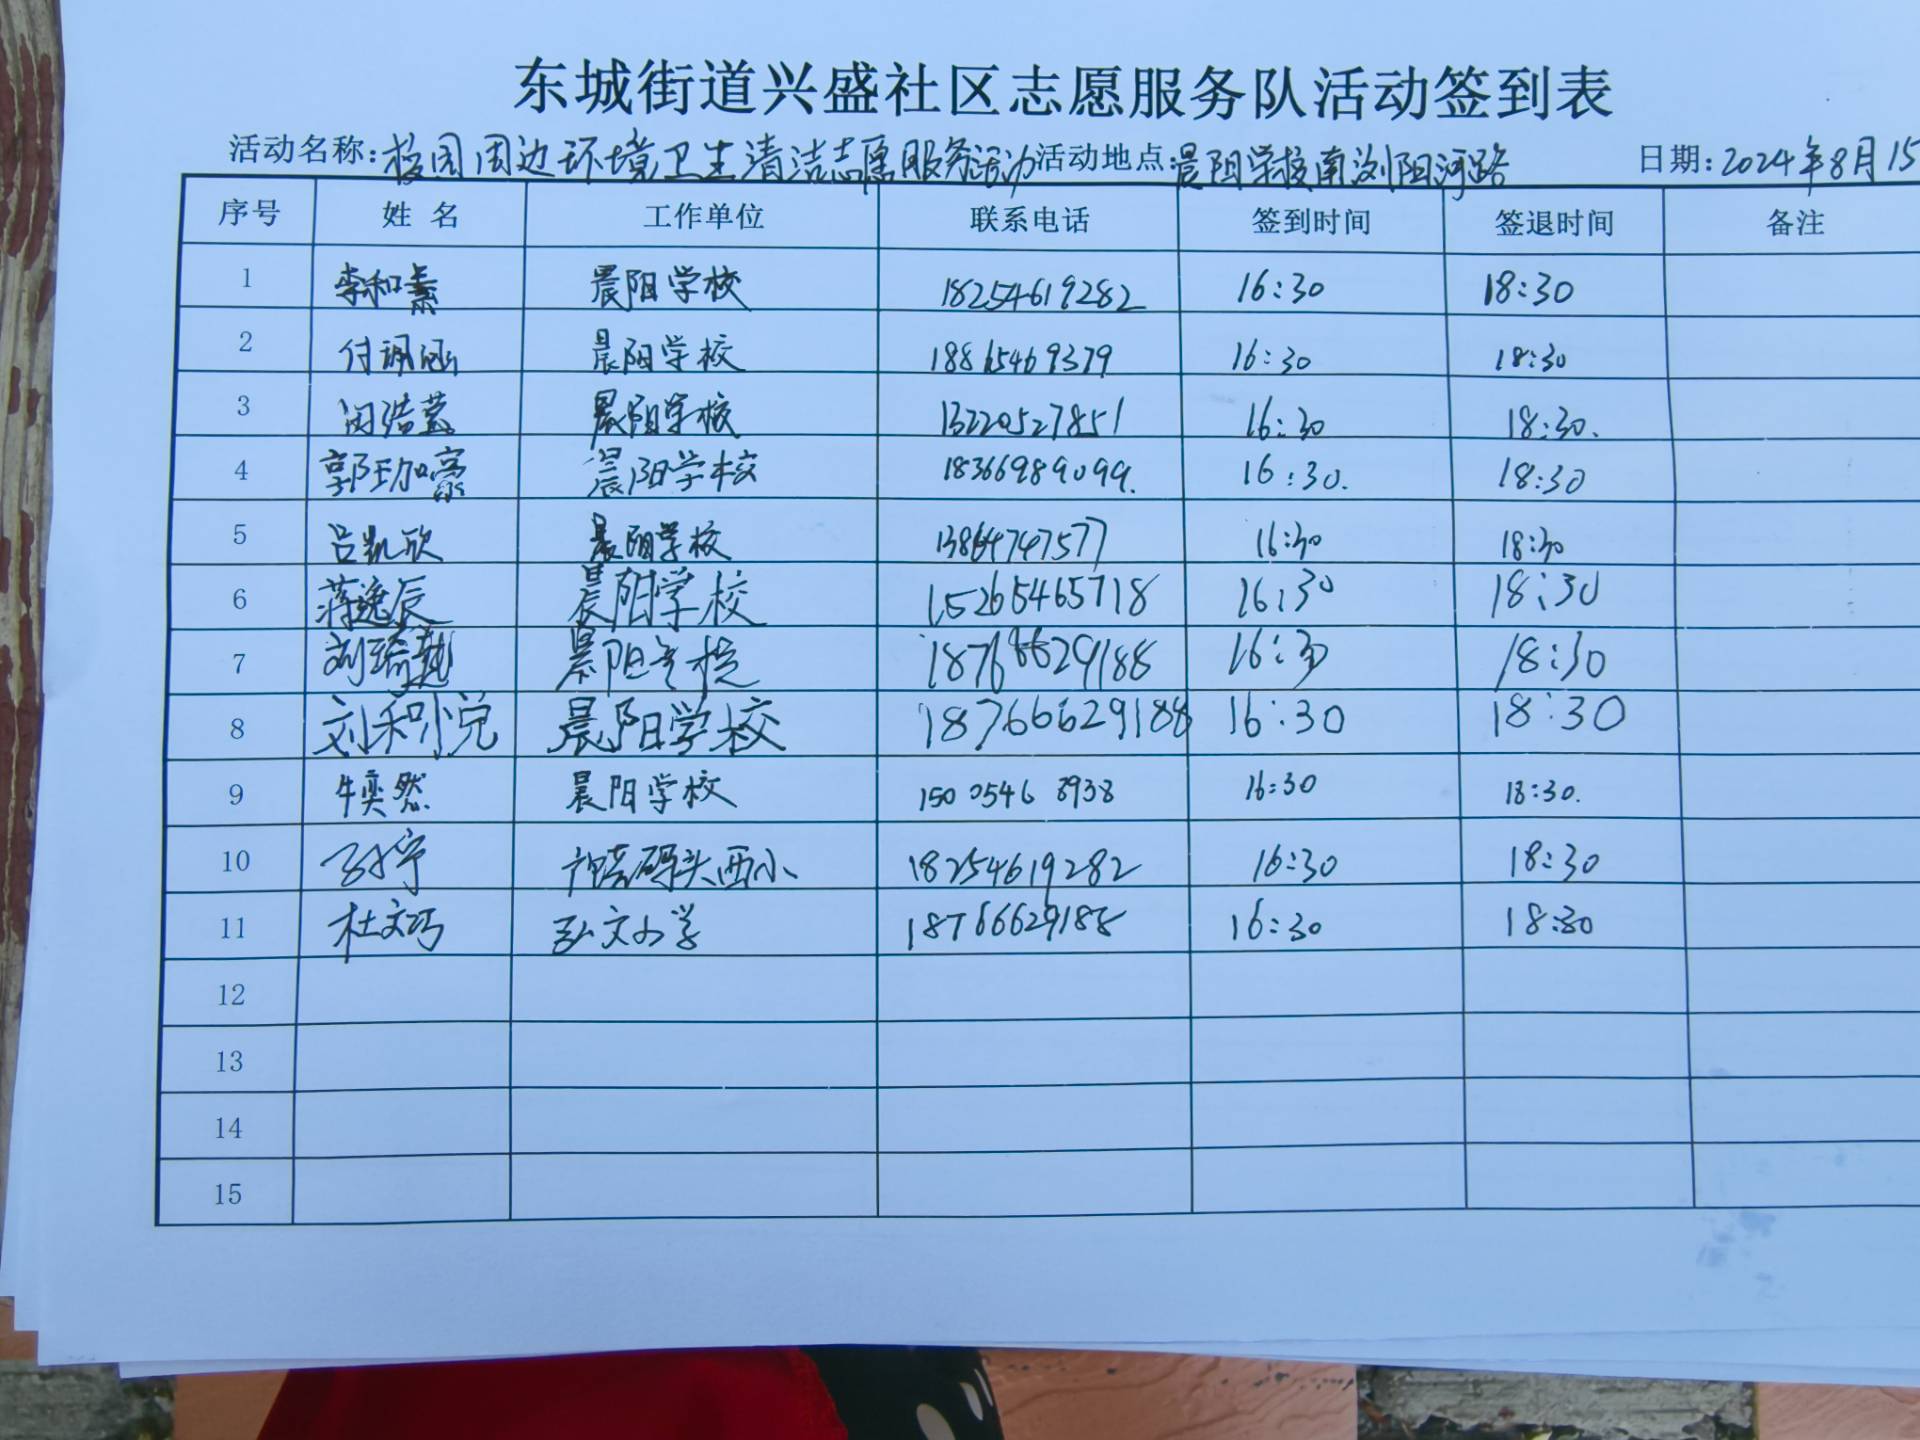 东城街道兴盛社区志愿服务队活动签到表
活动名称:校园周边环境卫生清洁志愿服务活动 活动地点:晨阳学校南浏阳河路 日期:2024年8月15
序号 姓名 工作单位 联系电话 签到时间 签退时间 备注
1 李和素 晨阳学校 18254619282 16:30 18:30
2 付 晨阳学校 18865469379 16:30 18:30
3 闵浩莹 晨阳学校 13220527851 16:30 18:30.
4 郭珈豪 晨阳学校 18366989099. 16:30. 18:30
5 吕凯欣 晨阳学校 13864747577 16:30 18:30
6 蒋逸辰 晨阳学校 15265465718 16:30 18:30
7 刘 晨阳学校 18766629188 16:30 18:30
8 刘和悦 晨阳学校 18766629188 16:30 18:30
9 牛奕然 晨阳学校 15005468938 16:30 18:30.
10 孙宁 码头西小 18254619282 16:30 18:30
11 杜文巧 弘文小学 18766629188 16:30 18:30
12
13
14
15